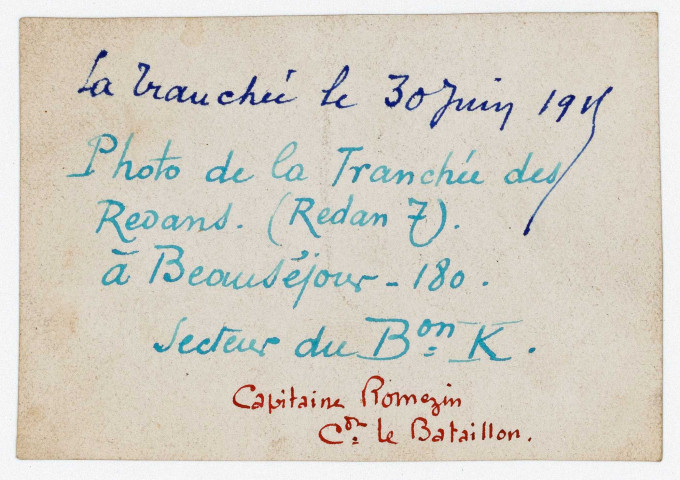 La Tranchée le 30 Juin 1915
Photo de la Tranchée des
Redans. (Redan 7).
à Beauséjour - 180.
Secteur du Bon K.
Capitaine Romezin
Cdt le Bataillon.